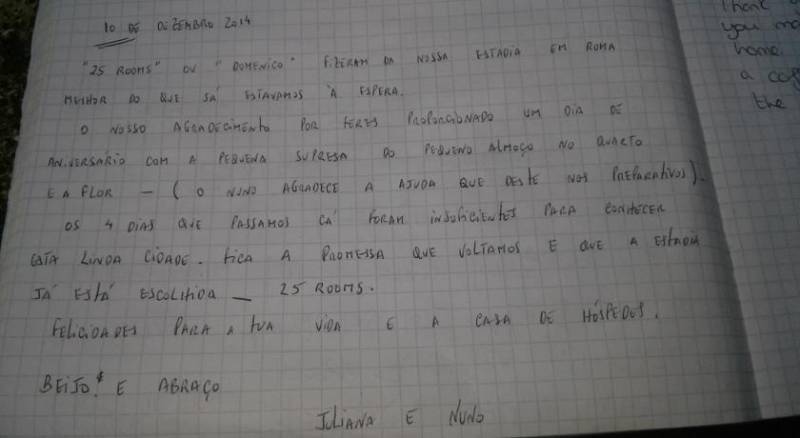 10 DE DEZEMBRO 2014
"25 ROOMS" OU "DOMENICO" FIZERAM DA NOSSA ESTADIA EM ROMA
MELHOR DO QUE SÁ ESTAVAMOS À ESPERA.
O NOSSO AGRADECIMENTO POR TERES PROPORCIONADO UM DIA DE
ANIVERSÁRIO COM A PEQUENA SUPRESA DO PEQUENO ALMOÇO NO QUARTO
E A FLOR — (O NUNO AGRADECE A AJUDA QUE DESTE NOS PREPARATIVOS).
OS 4 DIAS QUE PASSAMOS CÁ FORAM INSUFICIENTES PARA CONHECER
ESTA LINDA CIDADE. FICA A PROMESSA QUE VOLTAMOS E QUE A ESTADIA
JÁ ESTÁ ESCOLHIDA — 25 ROOMS.
FELICIDADES PARA A TUA VIDA E A CASA DE HÓSPEDES.
BEIJO! E ABRAÇO
JULIANA E NUNO
Thank
you
home.
a
the